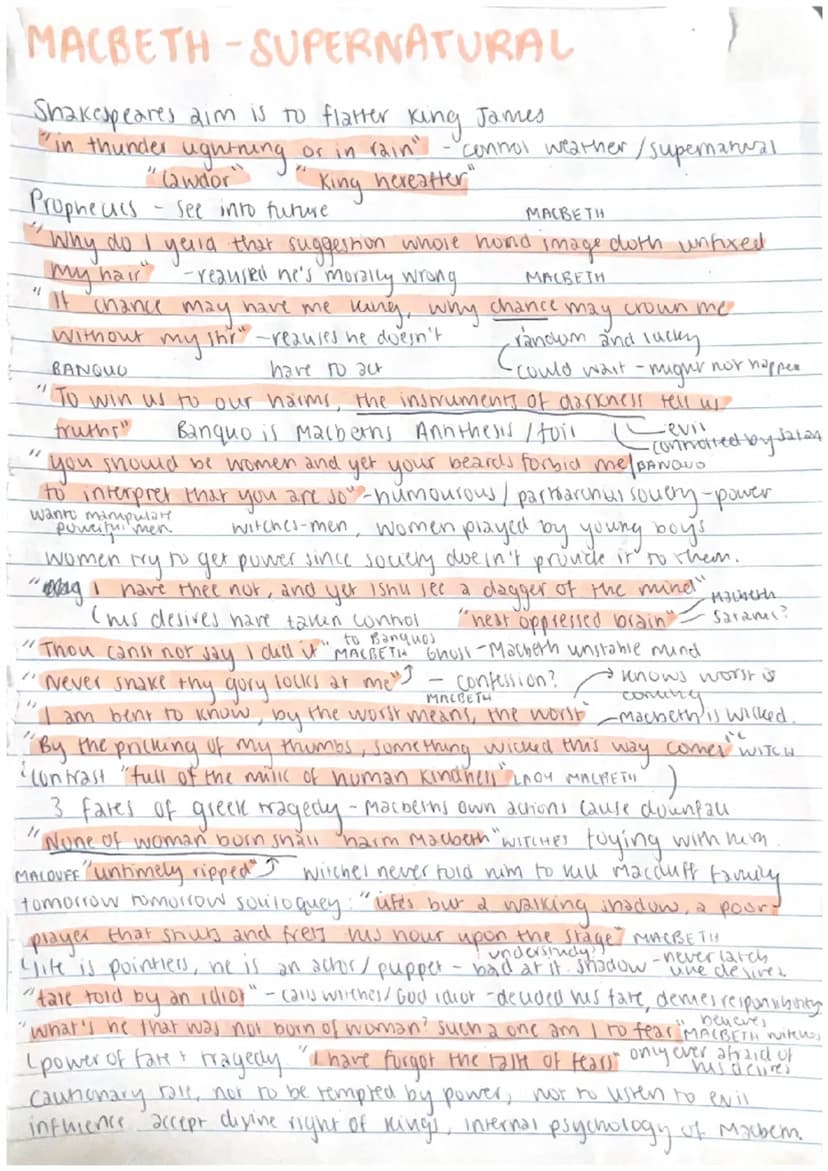 MACBETH - SUPERNATURAL
Shakespeares aim is to flatter King James
"in thunder lightning or in rain" - control weather / supernatural
"Cawdor" "King hereafter"
Prophecies - see into future MACBETH
"Why do I yeild that suggestion whose horrid image doth unfixed
my hair" - realised he's morally wrong MACBETH
"If chance may have me king, why chance may crown me
without my stir" - realises he doesn't random and lucky
BANQUO have to act could wait - might not happen
"To win us to our harms, the instruments of darkness tell us
truths" Banquo is Macbeths Antithesis / foil evil
controlled by Satan
"you should be women and yet your beards forbid me BANQUO
to interpret that you are so" - humourous / patriarchal society - power
want manipulate
powerful men witches - men, women played by young boys
women try to get power since society doesn't provide it to them.
" I have thee not, and yet I see a dagger of the mind"
his desires have taken control "heat oppressed brain" Macbeth
Satanic?
"Thou canst not say I did it" to Banquos
MACBETH Ghost - Macbeth unstable mind
"Never shake thy gory locks at me" - confession? knows worst is
coming
MACBETH
"I am bent to know, by the worst means, the worst" Macbeth is wicked.
"By the pricking of my thumbs, something wicked this way comes" WITCH
contrast "full of the milk of human kindness" LADY MACBETH
3 fates of greek tragedy - Macbeths own actions cause downfall
"None of woman born shall harm Macbeth" WITCHES toying with him
MACDUFF "untimely ripped" witches never told him to kill Macduff family
tomorrow tomorrow soliloquey: "lifes but a walking shadow, a poor
player that struts and frets his hour upon the stage" MACBETH
understudy?
life is pointless, he is an actor / puppet - bad at it. shadow - never
"tale told by an idiot" - calls witches / God idiot - decided his fate, denies responsibility
"what's he that was not born of woman? such a one am I to fear" believes
MACBETH witches
power of fate + tragedy "I have forgot the taste of fears" only ever afraid of
his desires
cautionary tale, not to be tempted by power, not to listen to evil
influence accept divine right of kings, internal psychology of Macbeth.